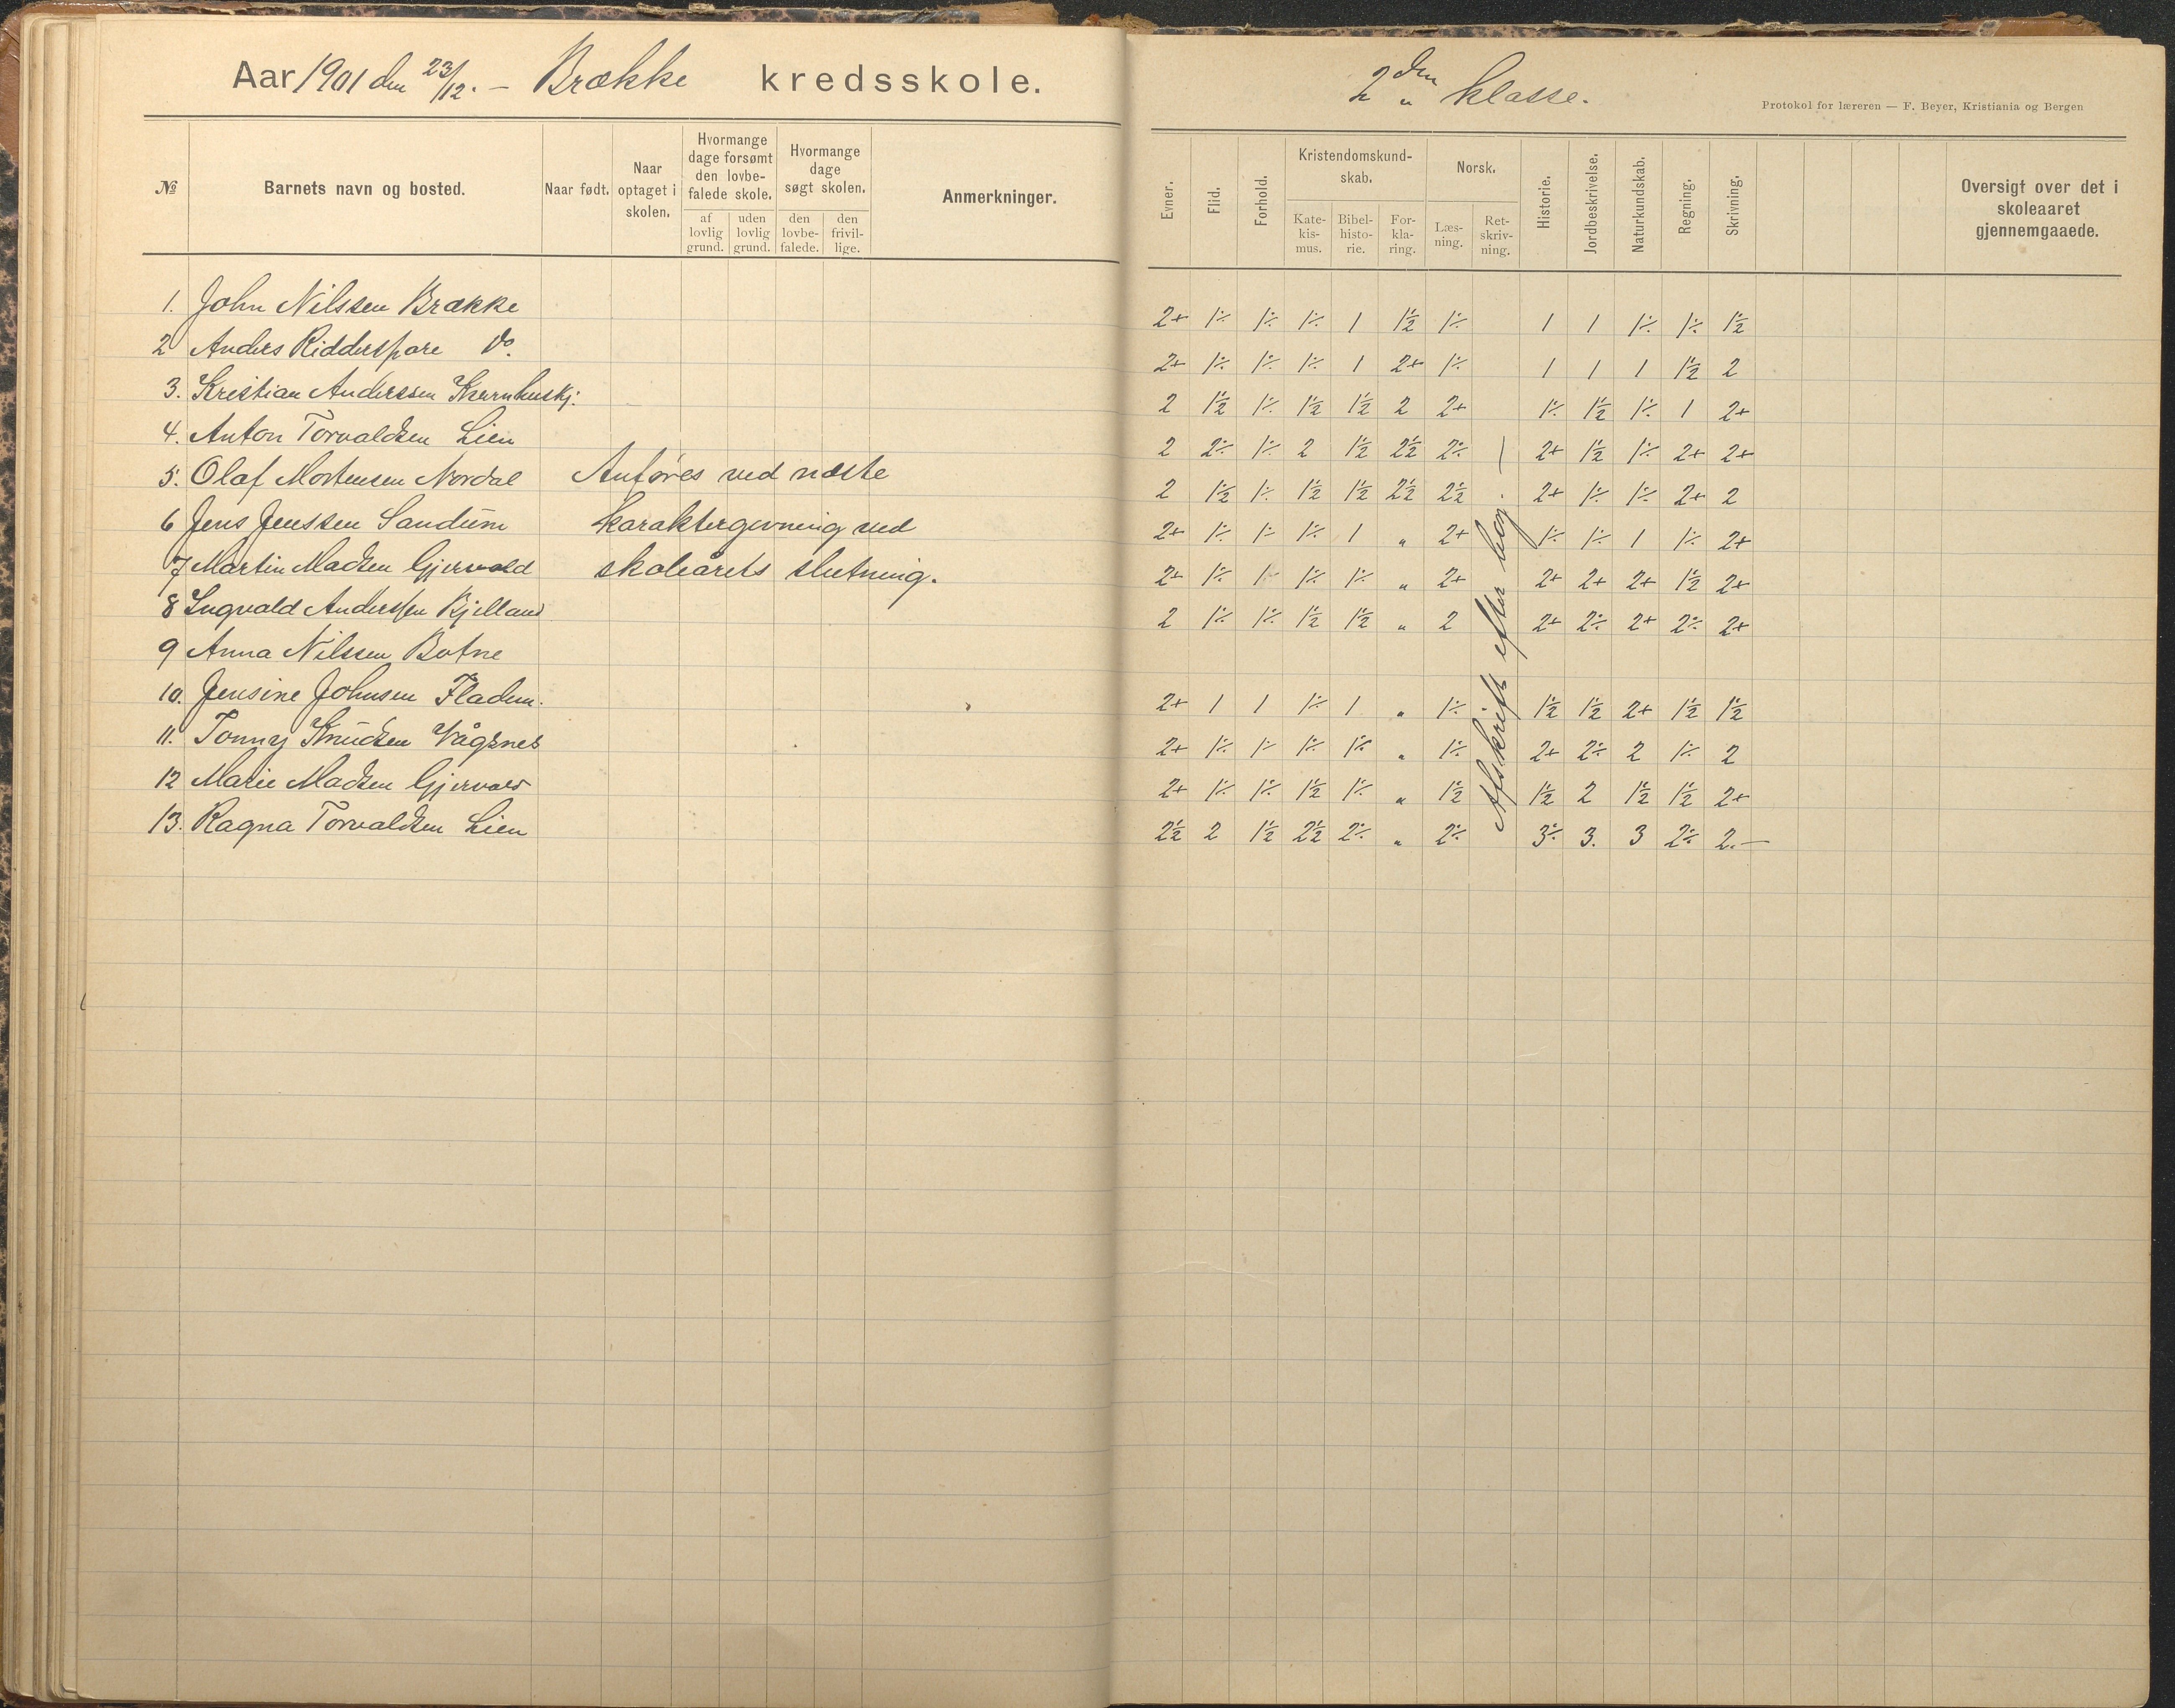 Aar 1901 den 23/12. – Brække kredsskole.
№
Barnets navn og bosted.
Naar født.
Naar optaget i skolen.
Hvormange dage forsømt den lovbefalede skole.
af lovlig grund.
uden lovlig grund.
Hvormange dage søgt skolen.
den lovbefalede.
den frivillige.
Anmerkninger.
1. John Nilssen Brække
2 Anders Ridderspore Do.
3. Kristian Anderssen
4. Anton Torvaldsen Lien
5. Olaf Mortensen Nordal
6 Jens Jenssen Sandum
7 Martin Madsen Gjervold
8 Ingvald Anderssen Kjelland
9 Anna Nilssen Botne
10. Jensine Johnsen Fladen.
11. Tonny Knudsen Vågsnes
12 Marie Madsen Gjervold
13. Ragna Torvaldsen Lien
Anføres ved næste
karaktergivning ved
skoleårets slutning.
2den klasse.
Protokol for læreren — F. Beyer, Kristiania og Bergen
Evner.
Flid.
Forhold.
Kristendomskundskab.
Katekismus.
Bibelhistorie.
Forklaring.
Norsk.
Læsning.
Retskrivning.
Historie.
Jordbeskrivelse.
Naturkundskab.
Regning.
Skrivning.
Oversigt over det i skoleaaret gjennemgaaede.
2+ 1÷ 1÷ 1÷ 1 1½ 1÷ 1 1 1÷ 1÷ 1½
2+ 1÷ 1÷ 1÷ 1 2+ 1÷ 1 1 1 1½ 2
2 1½ 1÷ 1½ 1½ 2 2+ 1÷ 1½ 1÷ 1 2+
2 2÷ 1÷ 2 1½ 2½ 2÷ 2+ 1½ 1÷ 2+ 2+
2 1½ 1÷ 1½ 1½ 2½ 2½ 2+ 1÷ 1÷ 2+ 2
2+ 1÷ 1÷ 1÷ 1 " 2+ 1÷ 1÷ 1 1÷ 2+
2+ 1÷ 1 1÷ 1÷ " 2+ 2+ 2+ 2+ 1½ 2+
2 1÷ 1÷ 1½ 1½ " 2 2+ 2÷ 2+ 2÷ 2+
2+ 1 1 1÷ 1 " 1÷ 1½ 1½ 2+ 1½ 1½
2+ 1÷ 1÷ 1÷ 1÷ " 1÷ 2+ 2÷ 2 1÷ 2
2+ 1÷ 1÷ 1½ 1÷ " 1½ 1½ 2 1½ 1½ 2+
2½ 2 1½ 2½ 2÷ " 2÷ 3÷ 3. 3 2÷ 2.—
Afskrift efter bog.